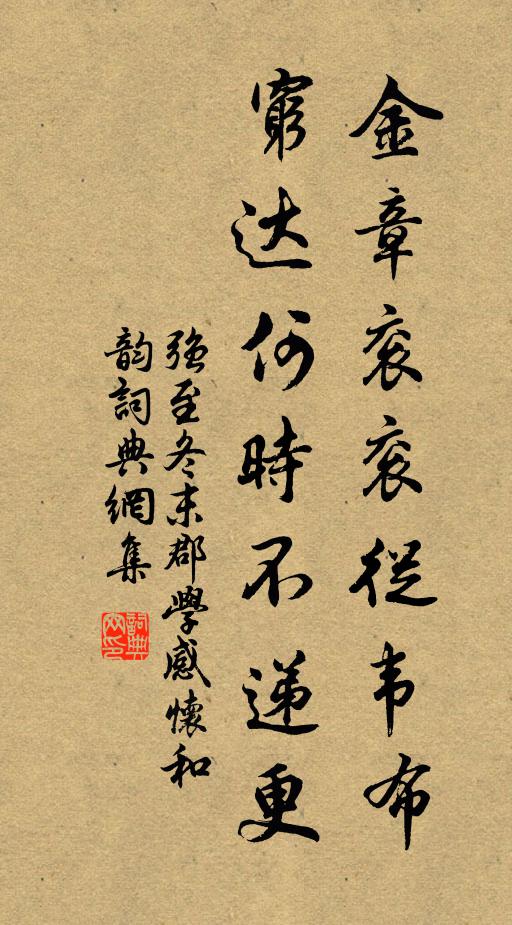 金章衮衮從韦布
窮达何時不递更
强至冬末郡學感懷和
韵詞典網集
詞典網印